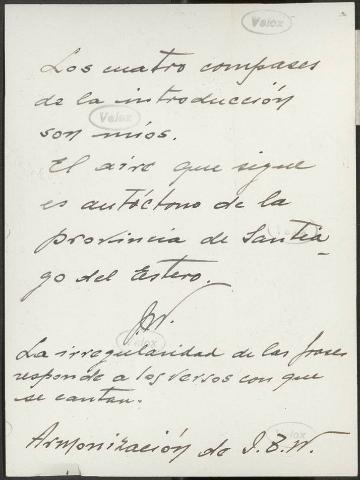 Velox
Los cuatro compases
de la introducción
Velox
son míos.
El aire que sigue
es autóctono de la
provincia de Santia-
go del Estero.
Velox
La irregularidad de las frases
responde a los versos con que
se cantan.
Velox
Armonización de I.B.W.